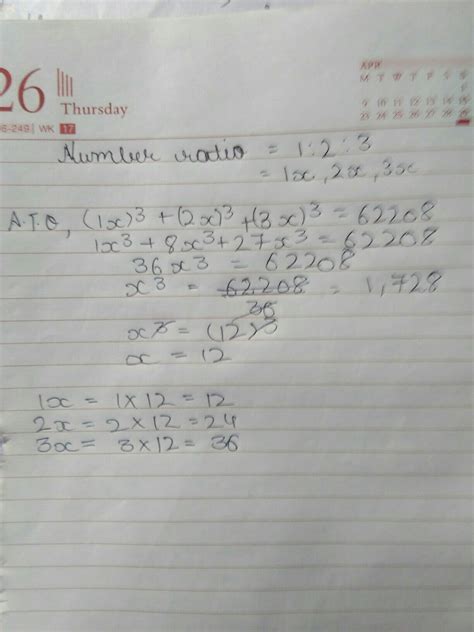 26 Thursday
6-249| WK 17
APR
M T W T F S
9 10 11 12 13 14
23 24 25 26 27 28
Number ratio = 1:2:3
= 1x, 2x, 3x
A.T.Q, (1x)³ + (2x)³ + (3x)³ = 62208
1x³ + 8x³ + 27x³ = 62208
36x³ = 62208
x³ = 62208/36 = 1,728
x³ = (12)³
x = 12
1x = 1×12 = 12
2x = 2×12 = 24
3x = 3×12 = 36